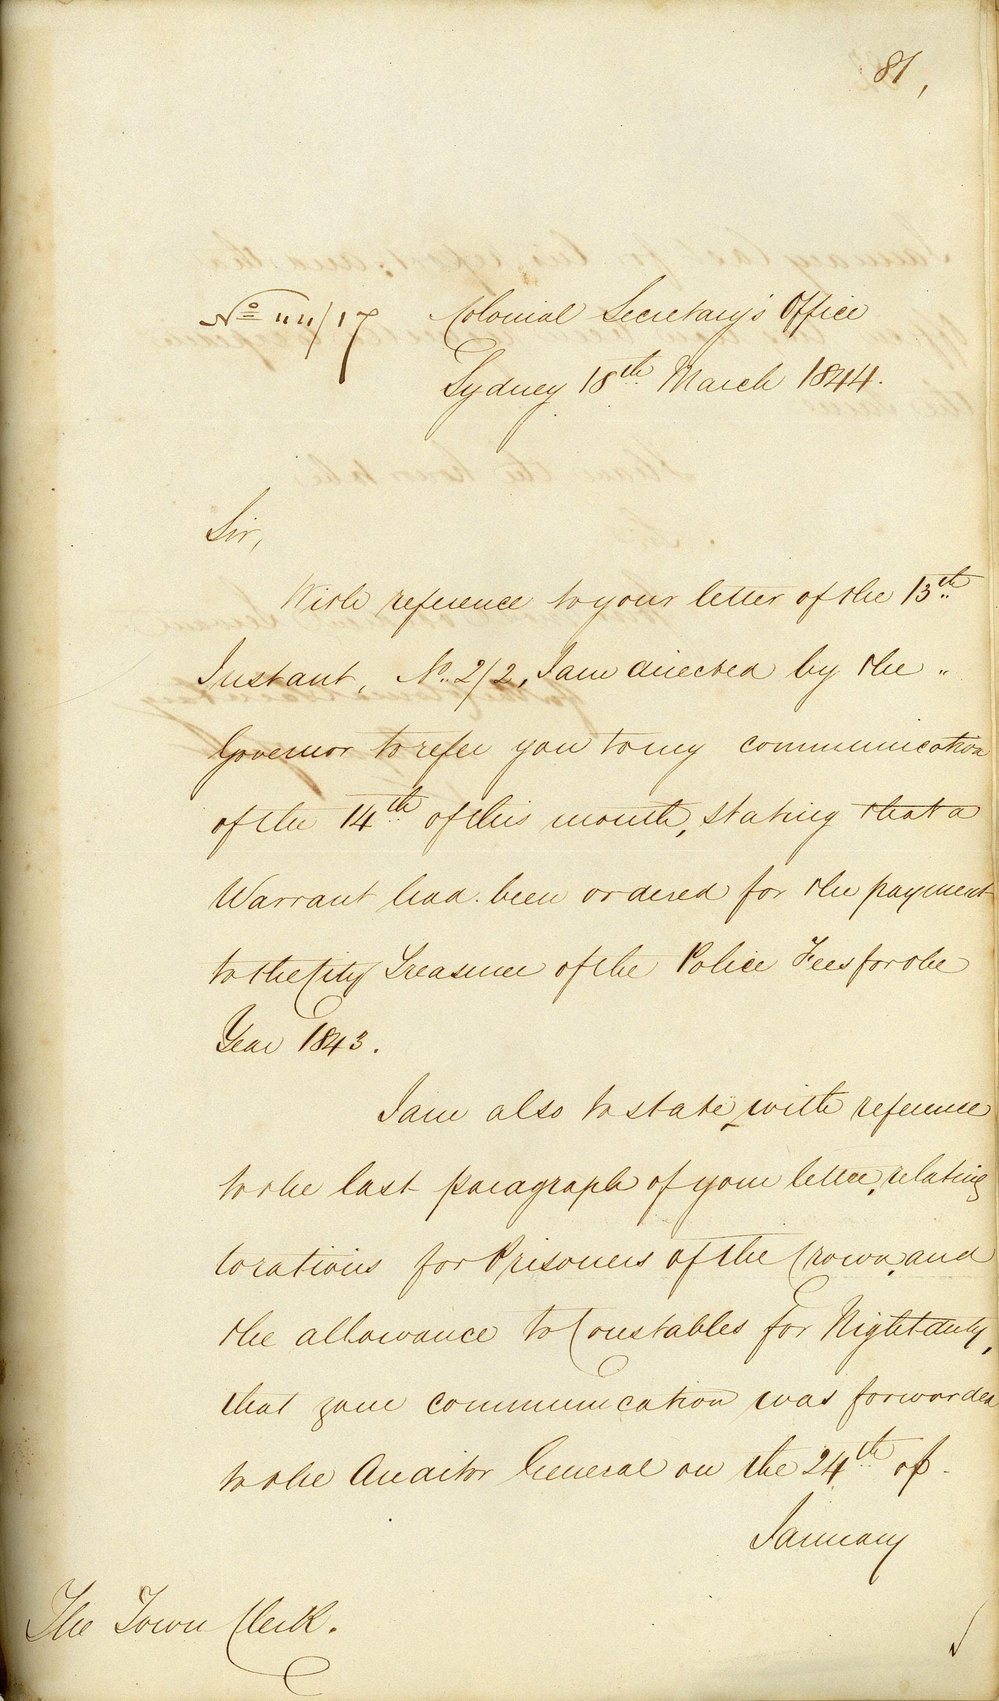 81,
No 44/17 Colonial Secretary's Office
Sydney 18th March 1844.
Sir,
With reference to your letter of the 13th
Instant, No. 2/2, I am directed by the "
Governor to refer you to my communication
of the 14th of this month, stating that a
Warrant had been ordered for the payment
to the City Treasurer of the Police Fees for the
Year 1843.
I am also to state, with reference
to the last paragraph of your letter, relating
to rations for Prisoners of the Crown, and
the allowance to Constables for Night duty,
that your communication was forwarded
to the Auditor General on the 24th of
January
The Town Clerk.